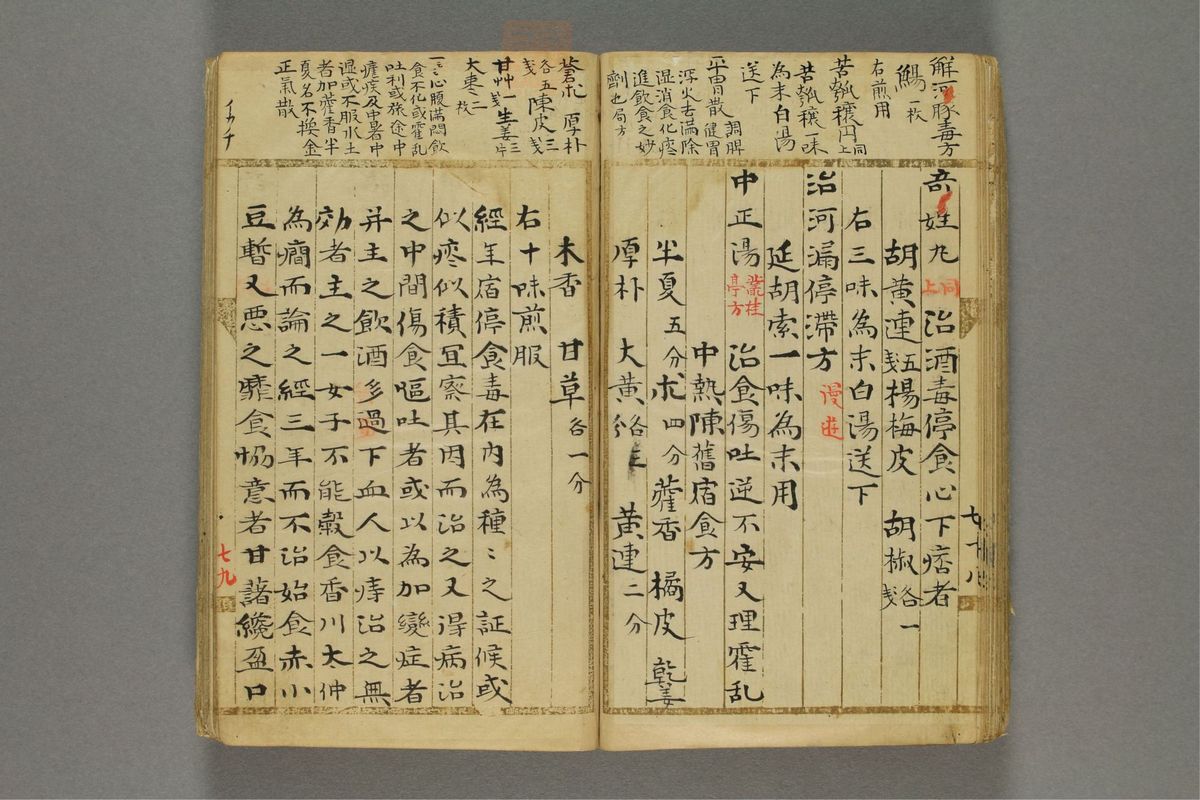 解河豚毒方
鯣 一枚
右煎用
苦瓠穰円 同上
苦瓠穰一味
為末白湯
送下
平胃散 調脾健胃
瀉火去満除
湿消食化痰
進飲食之妙
劑也局方
奇効丸 同上 治酒毒停食心下痞者
胡黄連 五戔 楊梅皮 胡椒 各一戔
右三味為末白湯送下
治河漏停滞方 漫遊
延胡索一味為末用
中正湯 叢桂亭方 治食傷吐逆不安又理霍乱
中熱陳舊宿食方
半夏 五分 朮 四分 藿香 橘皮 乾姜
厚朴 大黄 各三 黄連 二分
七十八
蒼朮 厚朴
各五戔 陳皮 三戔
甘艸 一 生姜 三片
大棗 二枚
一云心腹満悶飲
食不化或霍乱
吐利或旅途中
瘧疾及中暑中
湿或不服水土
者加藿香半
夏名不換金
正氣散
木香 甘草 各一分
右十味煎服
經年宿停食毒在内為種〻之証候或
似疼似積冝察其因而治之又得病治
之中間傷食嘔吐者或以為加變症者
并主之飲酒多過下血人以痔治之無
効者主之一女子不能穀食香川太仲
為癇而論之經三年而不治始食赤小
豆暫又悪之靡食惱意者甘藷纔盈口
七九